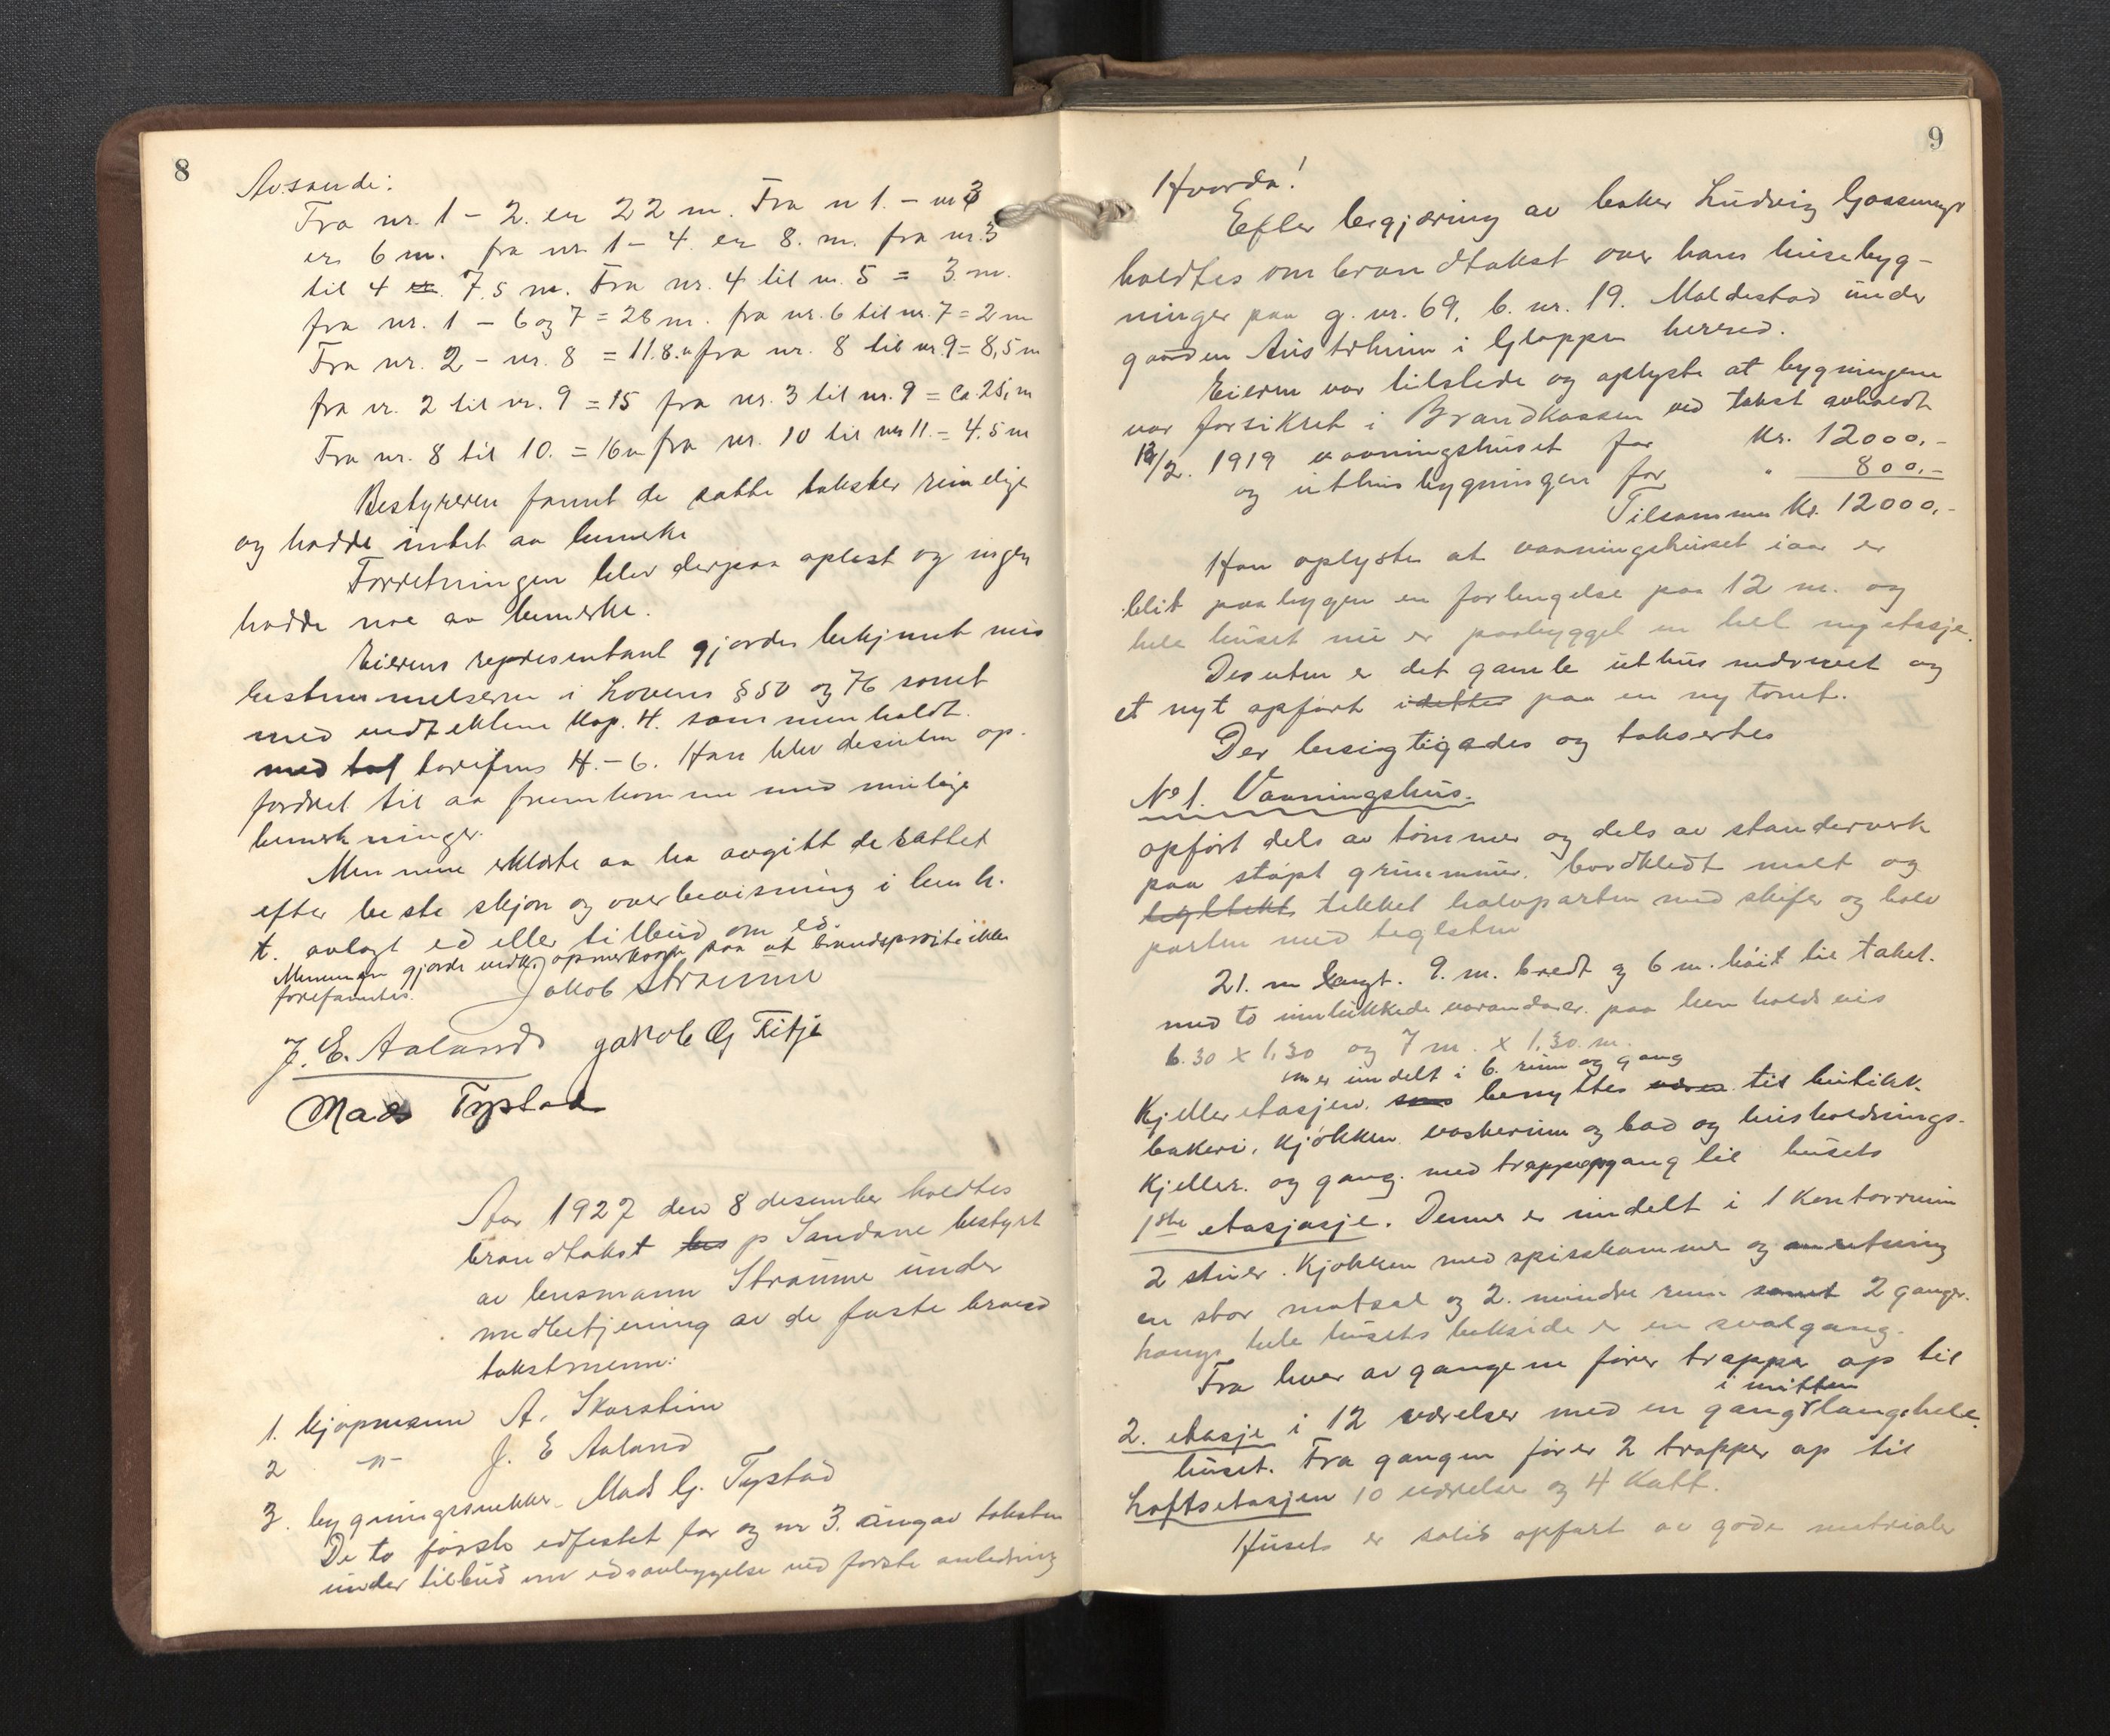 8
Avstande:
Fra nr. 1 - 2. er 22 m. Fra n 1. - nr 3
er 6 m. fra nr. 1 - 4. er 8. m. fra nr. 3
til 4 er. 7.5 m. Fra nr. 4 til nr. 5 = 3 m.
fra nr. 1 - 6 og 7 = 28 m. fra nr. 6 til nr. 7 = 2 m
Fra nr. 2 - nr. 8 = 11.8. m fra nr. 8 til nr. 9 = 8,5 m
fra nr. 2 til nr. 9 = 15 fra nr. 3 til nr. 9 = ca. 25, m
Fra nr. 8 til 10. = 16 m fra nr. 10 til nr 11. = 4.5 m
Bestyreren fannt de satte takster rimelige
og hadde intet aa bemerke
Forretningen blev derpaa oplest og ingen
hadde noe aa bemerke.
Eierens representant gjordes bekjennt med
bestemmelserne i Lovens § 50 og 76 samt
med vedtektene Kap. 4. sammenholdt.
med taf tarifens H. - 6. Han blev desuten op-
fordret til aa fremkomme med mulige
bemerkninger.
Mennene erklærte aa ha avgitt de sattet
efter beste skjøn og overbevisning i henh.
t. avlagt ed eller tilbud om ed.
Mennene gjorde vedk. opmerksom paa at brandsprøite ikke
forefantes.
Jakob Straume
J. E. Aaland Jakob G Fitje
Mads Tystad
Aar 1927 den 8 desember holdtes
brandtakst hos p Sandane bestyrt
av lensmann Straume under
medbetjening av de faste brand
takstmenn:
1. kjøpmann A. Skarstein
2 -"- J. E Aaland
3. bygningssnekker Mads G. Tystad
De to første edfestet for og nr 3. inngav taksten
under tilbud om edsavleggelse ved første anledning
9
Hvorda!
Efter begjæring av baker Ludvig Gossemyr
holdtes ombrandtakst over hans husebyg-
ninger paa g. nr. 69, b. nr. 19. Moldestad under
gaarden Austrheim i Gloppen herred.
Eieren var tilstede og oplyste at bygningene
var forsikret i Brandkassen ved takst avholdt
13/2. 1919 vaaningshuset for Kr. 12000.-
og uthusbygningen for " 800.-
Tilsammen Kr. 12000.-
Han oplyste at vaaningshuset iaar er
blit paabygen en forlengelse paa 12 m. og
hele huset nu er paabygget en hel ny etasje.
Desuten er det gamle uthus nedrevet og
et nyt opført idettes paa en ny tomt.
Der besigtigedes og taksertes
No 1. Vaaningshus.
opført dels av tømmer og dels av standerverk
paa støpt grunnmur. bordkledt malt og
tegltekt tekket halvparten med skifer og halv
parten med teglsten
21. m langt. 9. m. bredt og 6 m. høit til taket.
med to innlukkede verandaer. paa henholdsvis
6.30 x 1,30 og 7 m. x 1,30 m.
som er inndelt i 6. rum og gang
Kjelleretasjen. som benyttes være til butikk.
bakeri, kjøkken vaskerum og bad og husholdnings-
Kjeller. og gang. med trappopgang til husets
1ste etasjasje. Denne er inndelt i 1 Kontorrum
2 stuer. Kjøkken med spiskammer og anretning
en stor matsal og 2. mindre rum samt 2 ganger.
langs hele husets bakside er en svalgang.
Fra hver av gangene fører trapper op til
i mitten
2. etasje i 12 værelser med en gang langs hele
huset. Fra gangen fører 2 trapper op til
Loftsetasjen 10 værelser og 4 Katt.
Huset er solid opført av gode materialer